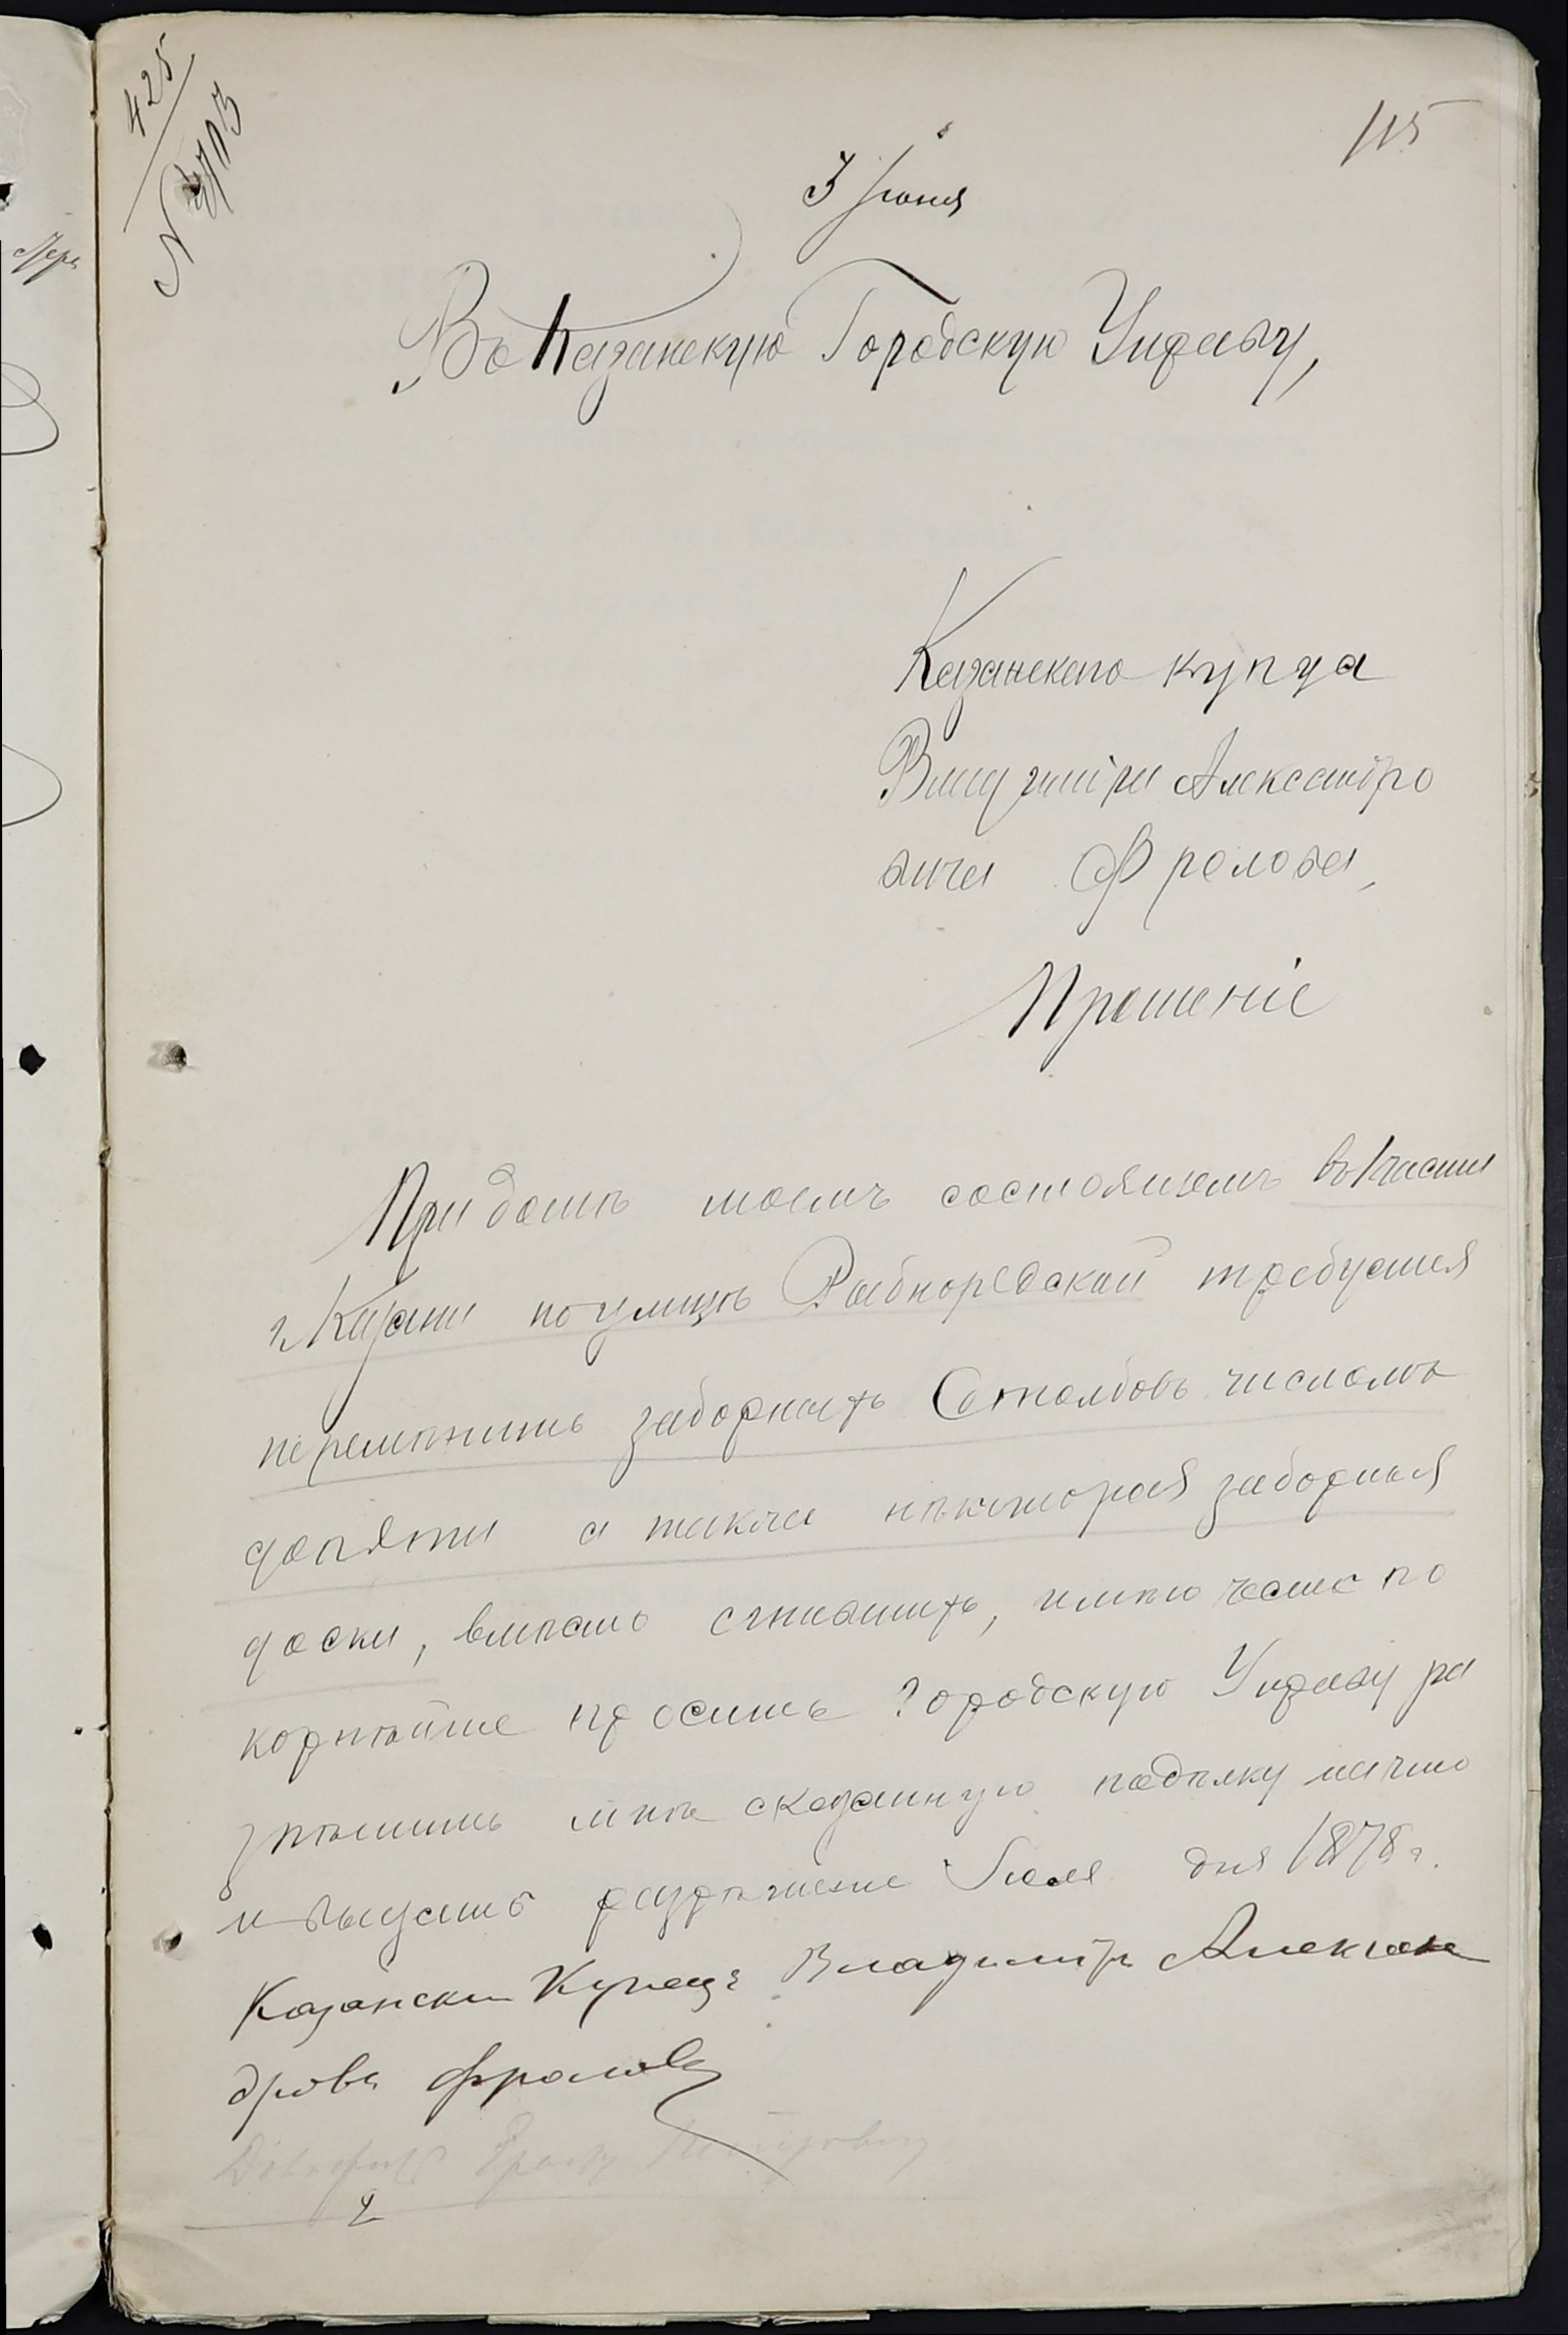 425
115
3 Іюня
Въ Казанскую Городскую Управу,
Казанскаго купца
Владиміра Александро
вича Фролова,
Прошеніе
При домѣ моемъ состоящемъ въ 1 части
г Казани по улицѣ Рыбнорядской требуется
перемѣнить заборныхъ Столбовъ числомъ
до пяти а также нѣкоторыя заборныя
доски, вместо сгнившихъ, имѣю честь по
корнѣйше просить Городскую Управу ра
зрѣшить мнѣ сказанную подѣлку на что
и выдать разрѣшение Іюня дня 1878 г.
Казански Купецъ Владиміръ Алексан
дровъ Фроловъ